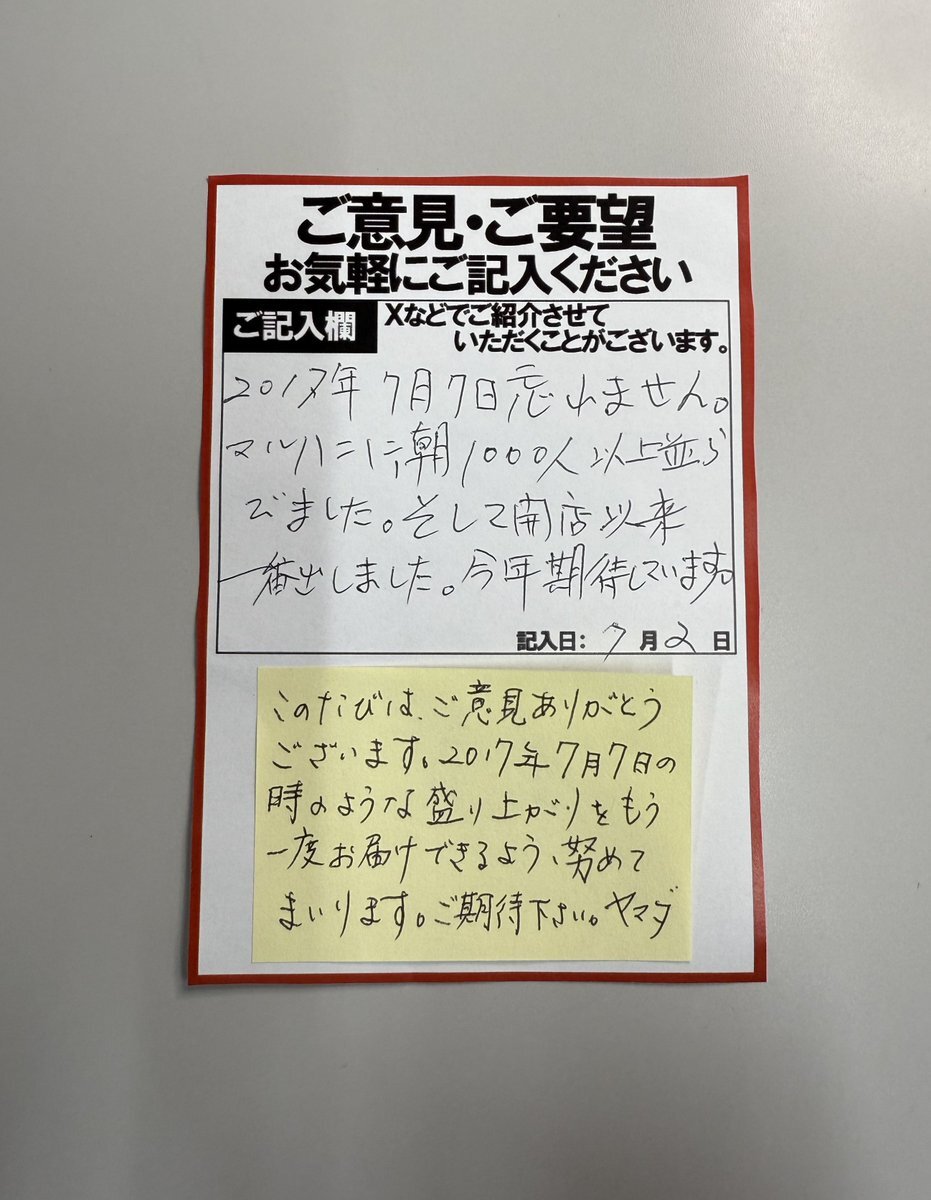 ご意見・ご要望
お気軽にご記入ください
ご記入欄
Xなどでご紹介させて
いただくことがございます。
2017年7月7日忘れません。
マルハンに朝1000人以上並ら
でました。そして開店以来
一番出しました。今年期待しています。
記入日: 7月2日
このたびは、ご意見ありがとう
ございます。2017年7月7日の
時のような盛り上がりをもう
一度お届けできるよう、努めて
まいります。ご期待下さい。ヤマダ